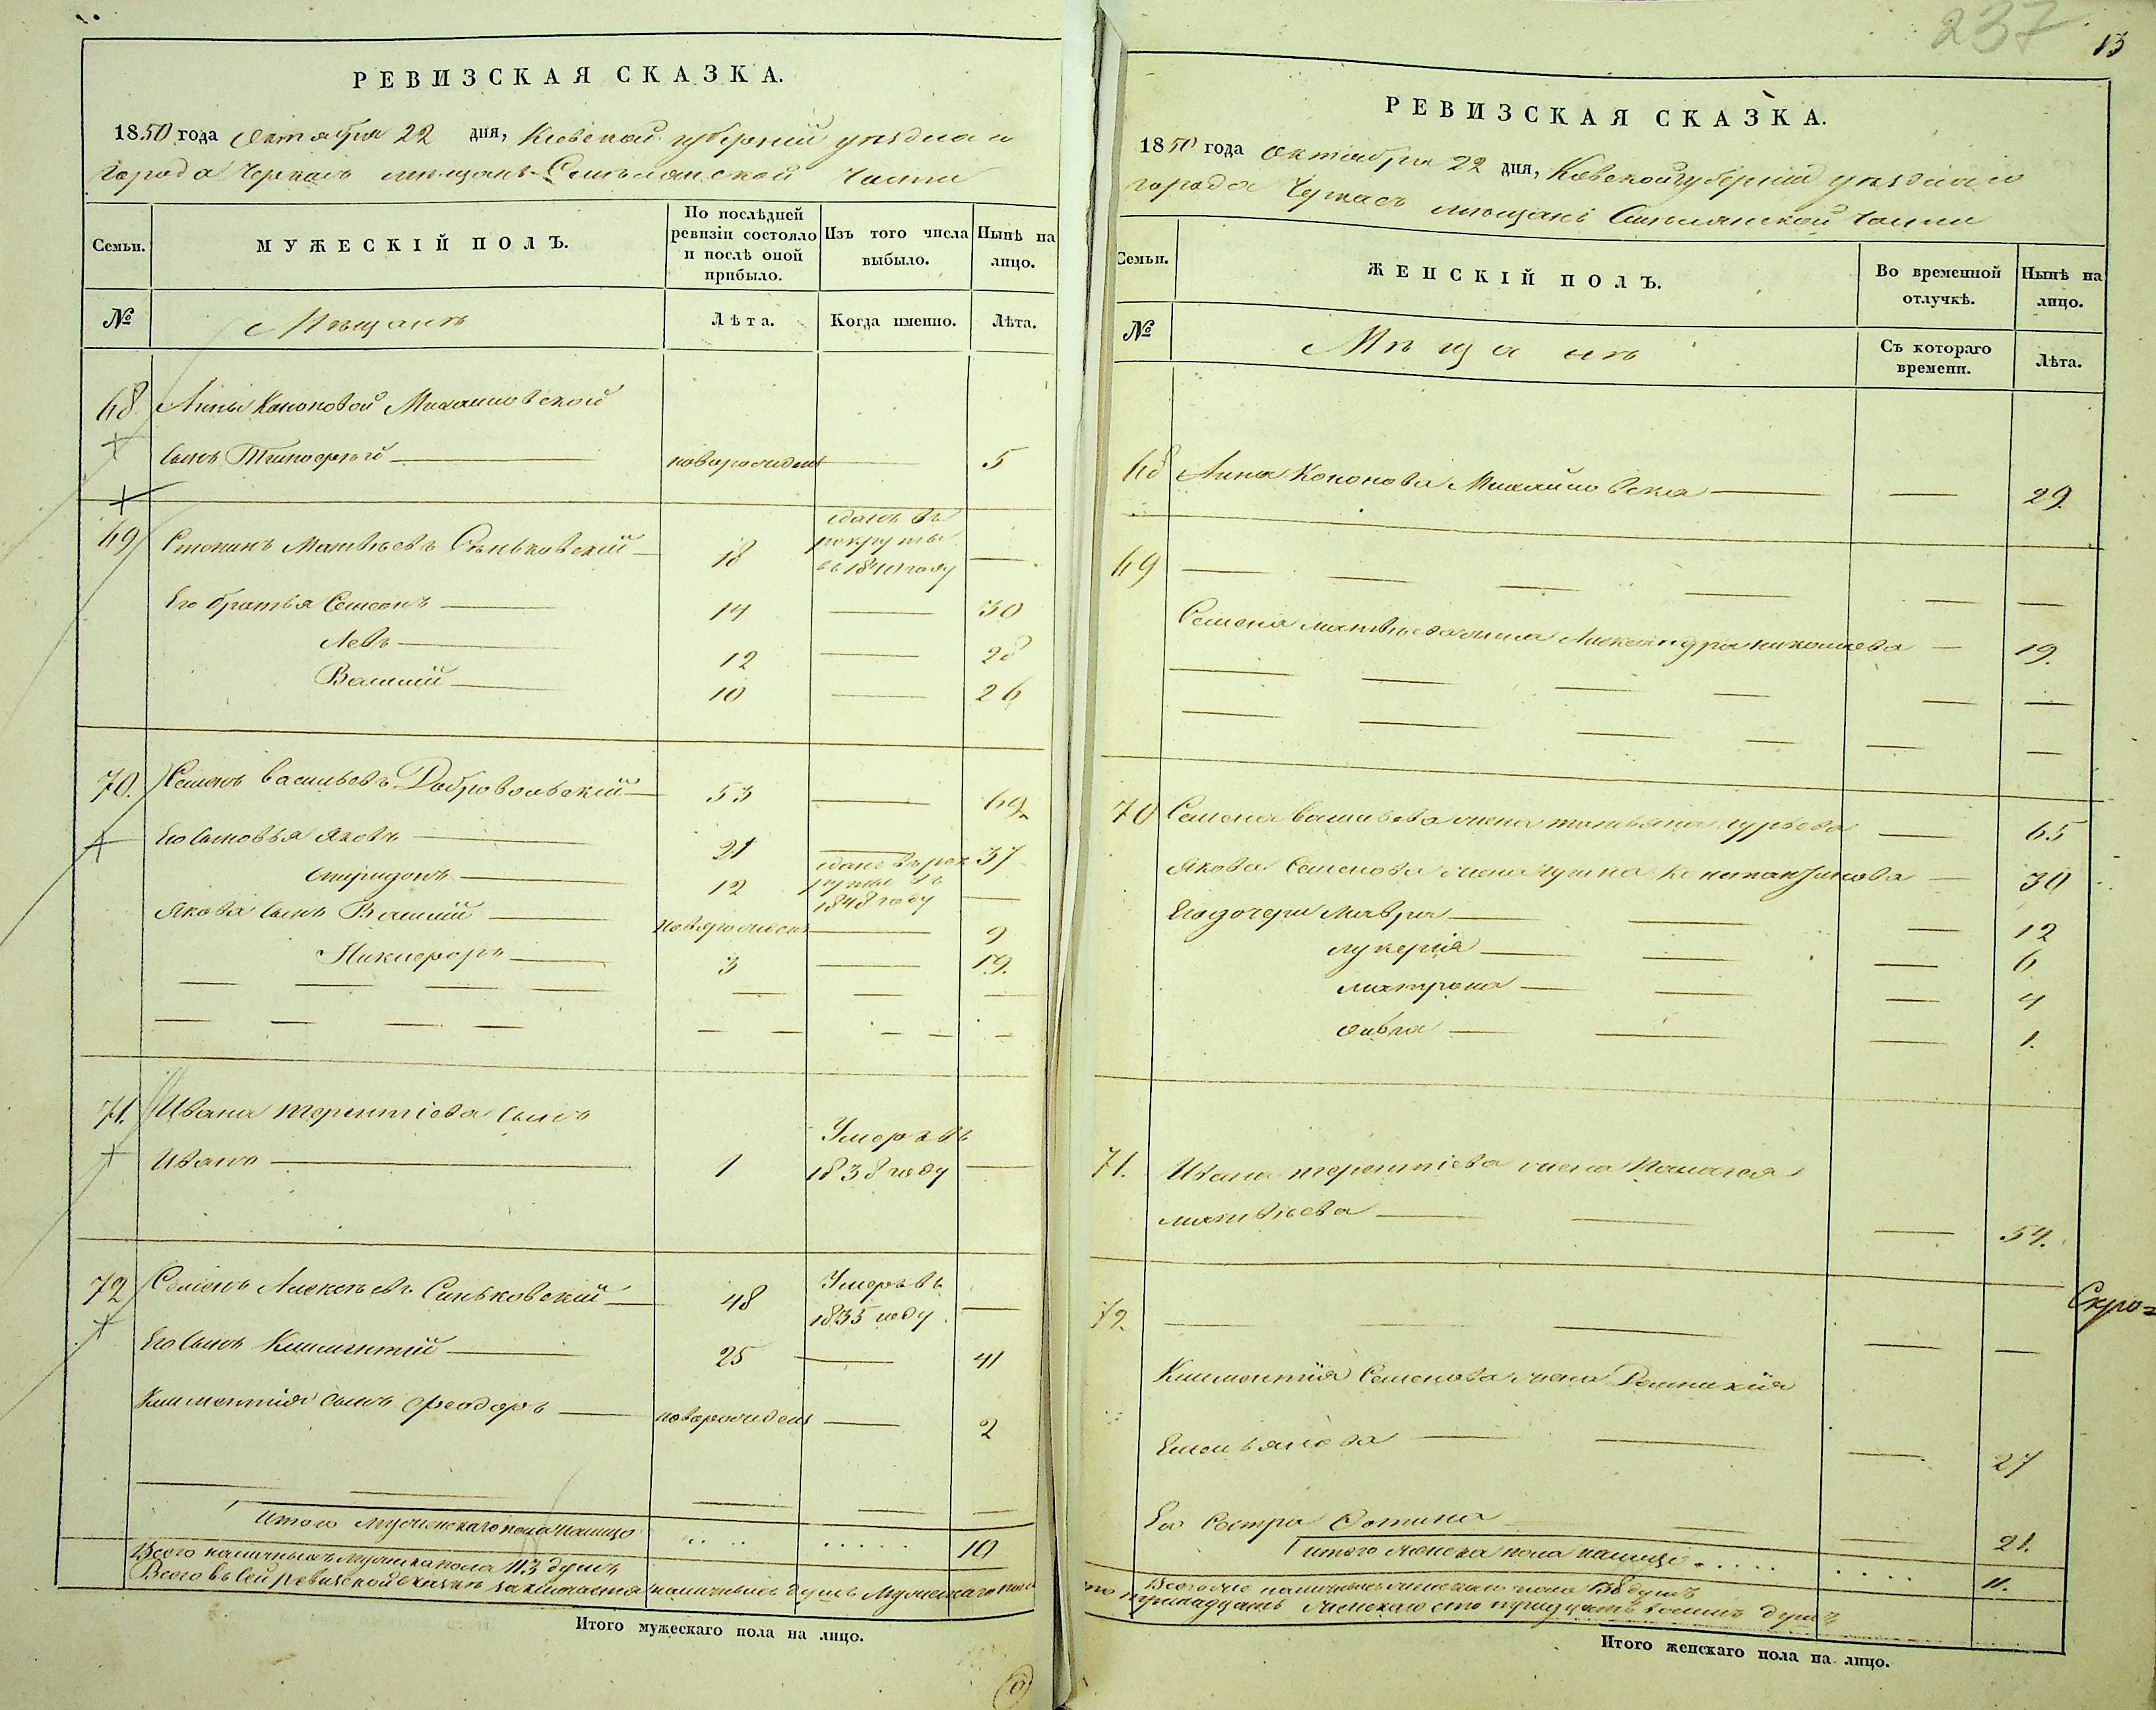 РЕВИЗСКАЯ СКАЗКА.
1850 года Октября 22 дня, Кіевской губерніи уезднаго
города Черкасъ мещанъ Смелянской части
Семьи.
МУЖЕСКІЙ ПОЛЪ.
По послѣдней ревизіи состояло и послѣ оной прибыло.
Изъ того числа выбыло.
Нынѣ на лицо.
№
Мещанъ
Лѣта.
Когда именно.
Лѣта.
68 Анны Кононовой Михайловской
сынъ Тимофѣй новорожденъ 5
69 Степанъ Матвѣевъ Синьковскій 18 сданъ въ рекруты въ 1840 году
Его братья Семеонъ 14 30
Левъ 12 28
Василій 10 26
70. Семенъ Васильевъ Добровольскій 53 69
Его сыновья Яковъ 21 37
Спиридонъ 12 сданъ въ рекруты въ 1848 году
Якова сынъ Василій новорожденъ 9
Никифоръ 3 19.
71. Ивана Терентіева сынъ
Иванъ 1 Умеръ въ 1838 году
72 Семенъ Алексѣевъ Синьковскій 48 Умеръ въ 1835 году
Его сынъ Климентій 25 41
Климентія сынъ Феодоръ новорожденъ 2
Итого мужескаго пола налицо 10
Всего наличныхъ мужска пола 113 душъ
Всего въ сей ревизской сказке заключается наличныхъ душъ мужескаго пола
Итого мужескаго пола на лицо.
237
13
РЕВИЗСКАЯ СКАЗКА.
1850 года Октября 22 дня, Кіевской губерніи уезднаго
города Черкасъ мещанъ Смелянской части
Семьи.
ЖЕНСКІЙ ПОЛЪ.
Во временной отлучкѣ.
Нынѣ на лицо.
№
Мещанъ
Съ котораго времени.
Лѣта.
68 Анна Кононова Михайловска 29.
69
Семена Матвѣева жена Александра Николаева 19.
70 Семена Васильева жена Татьяна Гурьева 65
Якова Семенова жена 30
Его дочери Мавра 12
Лукерія 6
Матрона 4
1.
71. Ивана Терентіева жена Палагея
Матвѣева 54.
72
Климентія Семенова жена
Емельянова 27
Его сестра 21.
Итого женска пола налицо 11.
Всего же наличныхъ женскаго пола 138 душъ
сто тринадцать женскаго сто тридцать восемь душъ
Итого женскаго пола на лицо.
Скро=